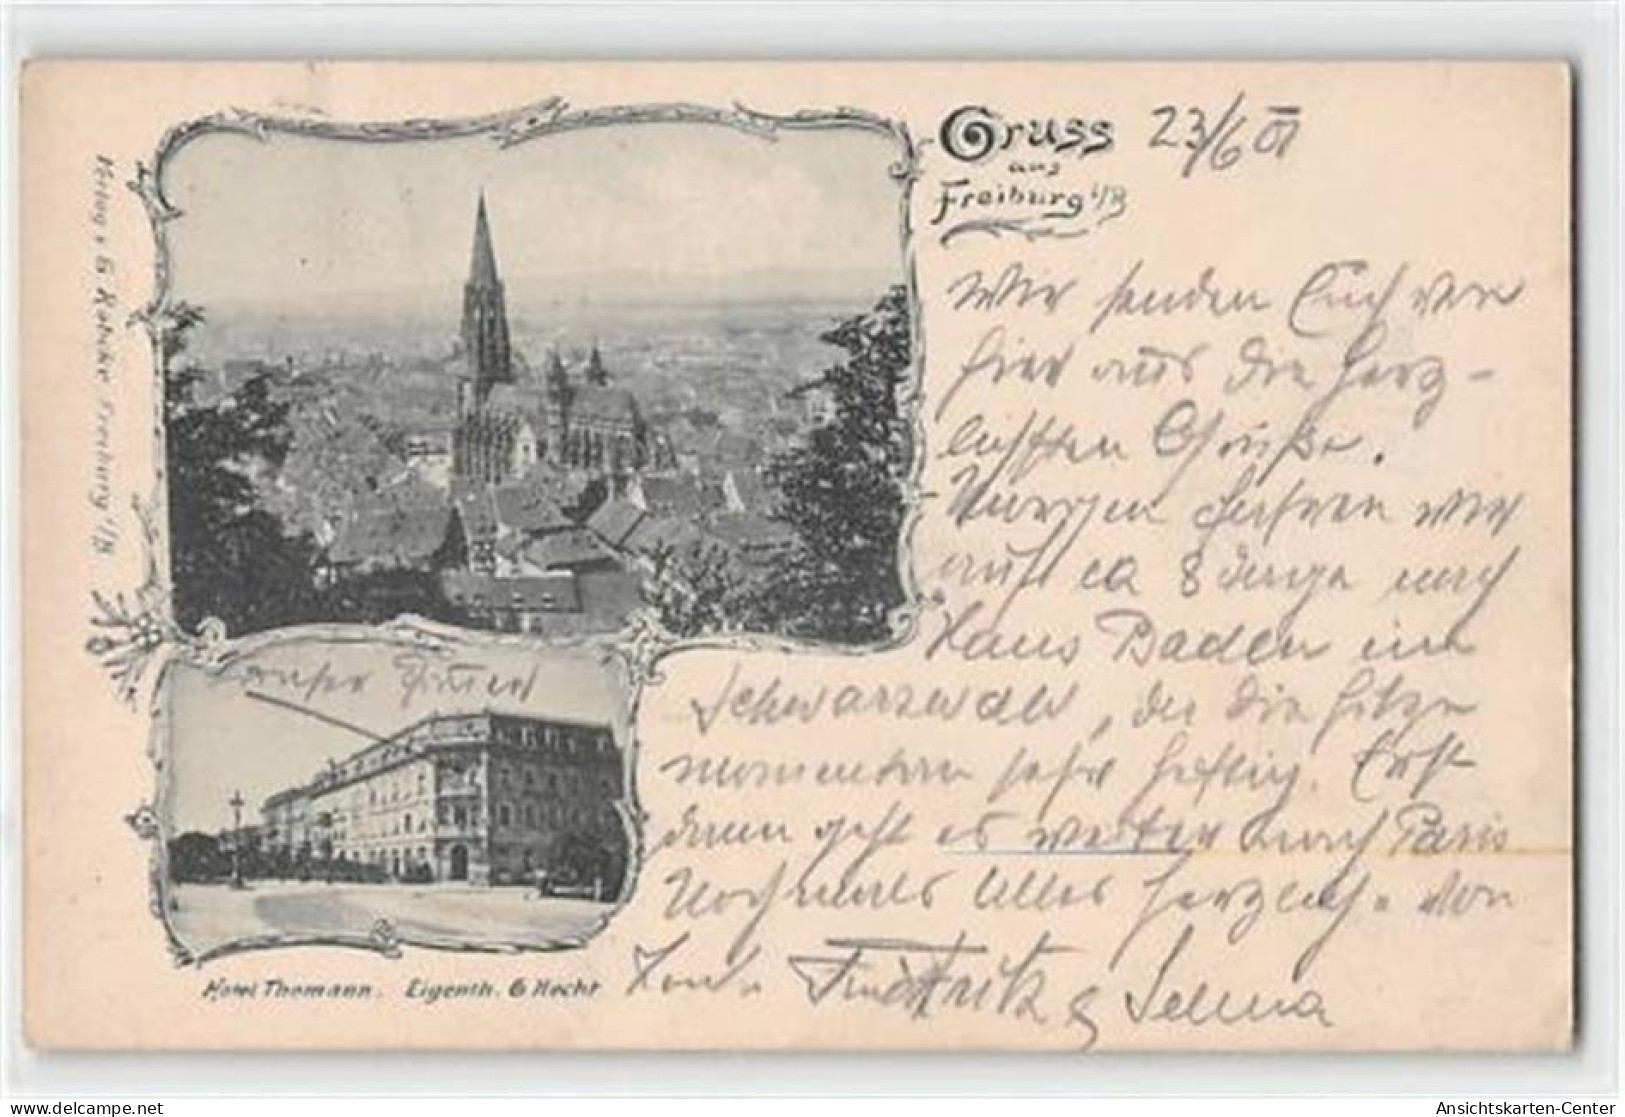 Gruss
aus
Freiburg i/B
23/6 01
Wir senden Euch von
hier aus die herz-
lichsten Grüße.
Morgen fahren wir
auf ca 8 Tage nach
Haus Baden im
Schwarzwald, da die Hitze
momentan sehr heftig. Erst
dann geht es weiter nach Paris
Nochmals Alles herzliche von
Fritz & Selma
unser Zimmer
Hotel Thomann. Eigenth. G Hecht
Verlag v. G Freiburg i/B
Ansichtskarten-Center